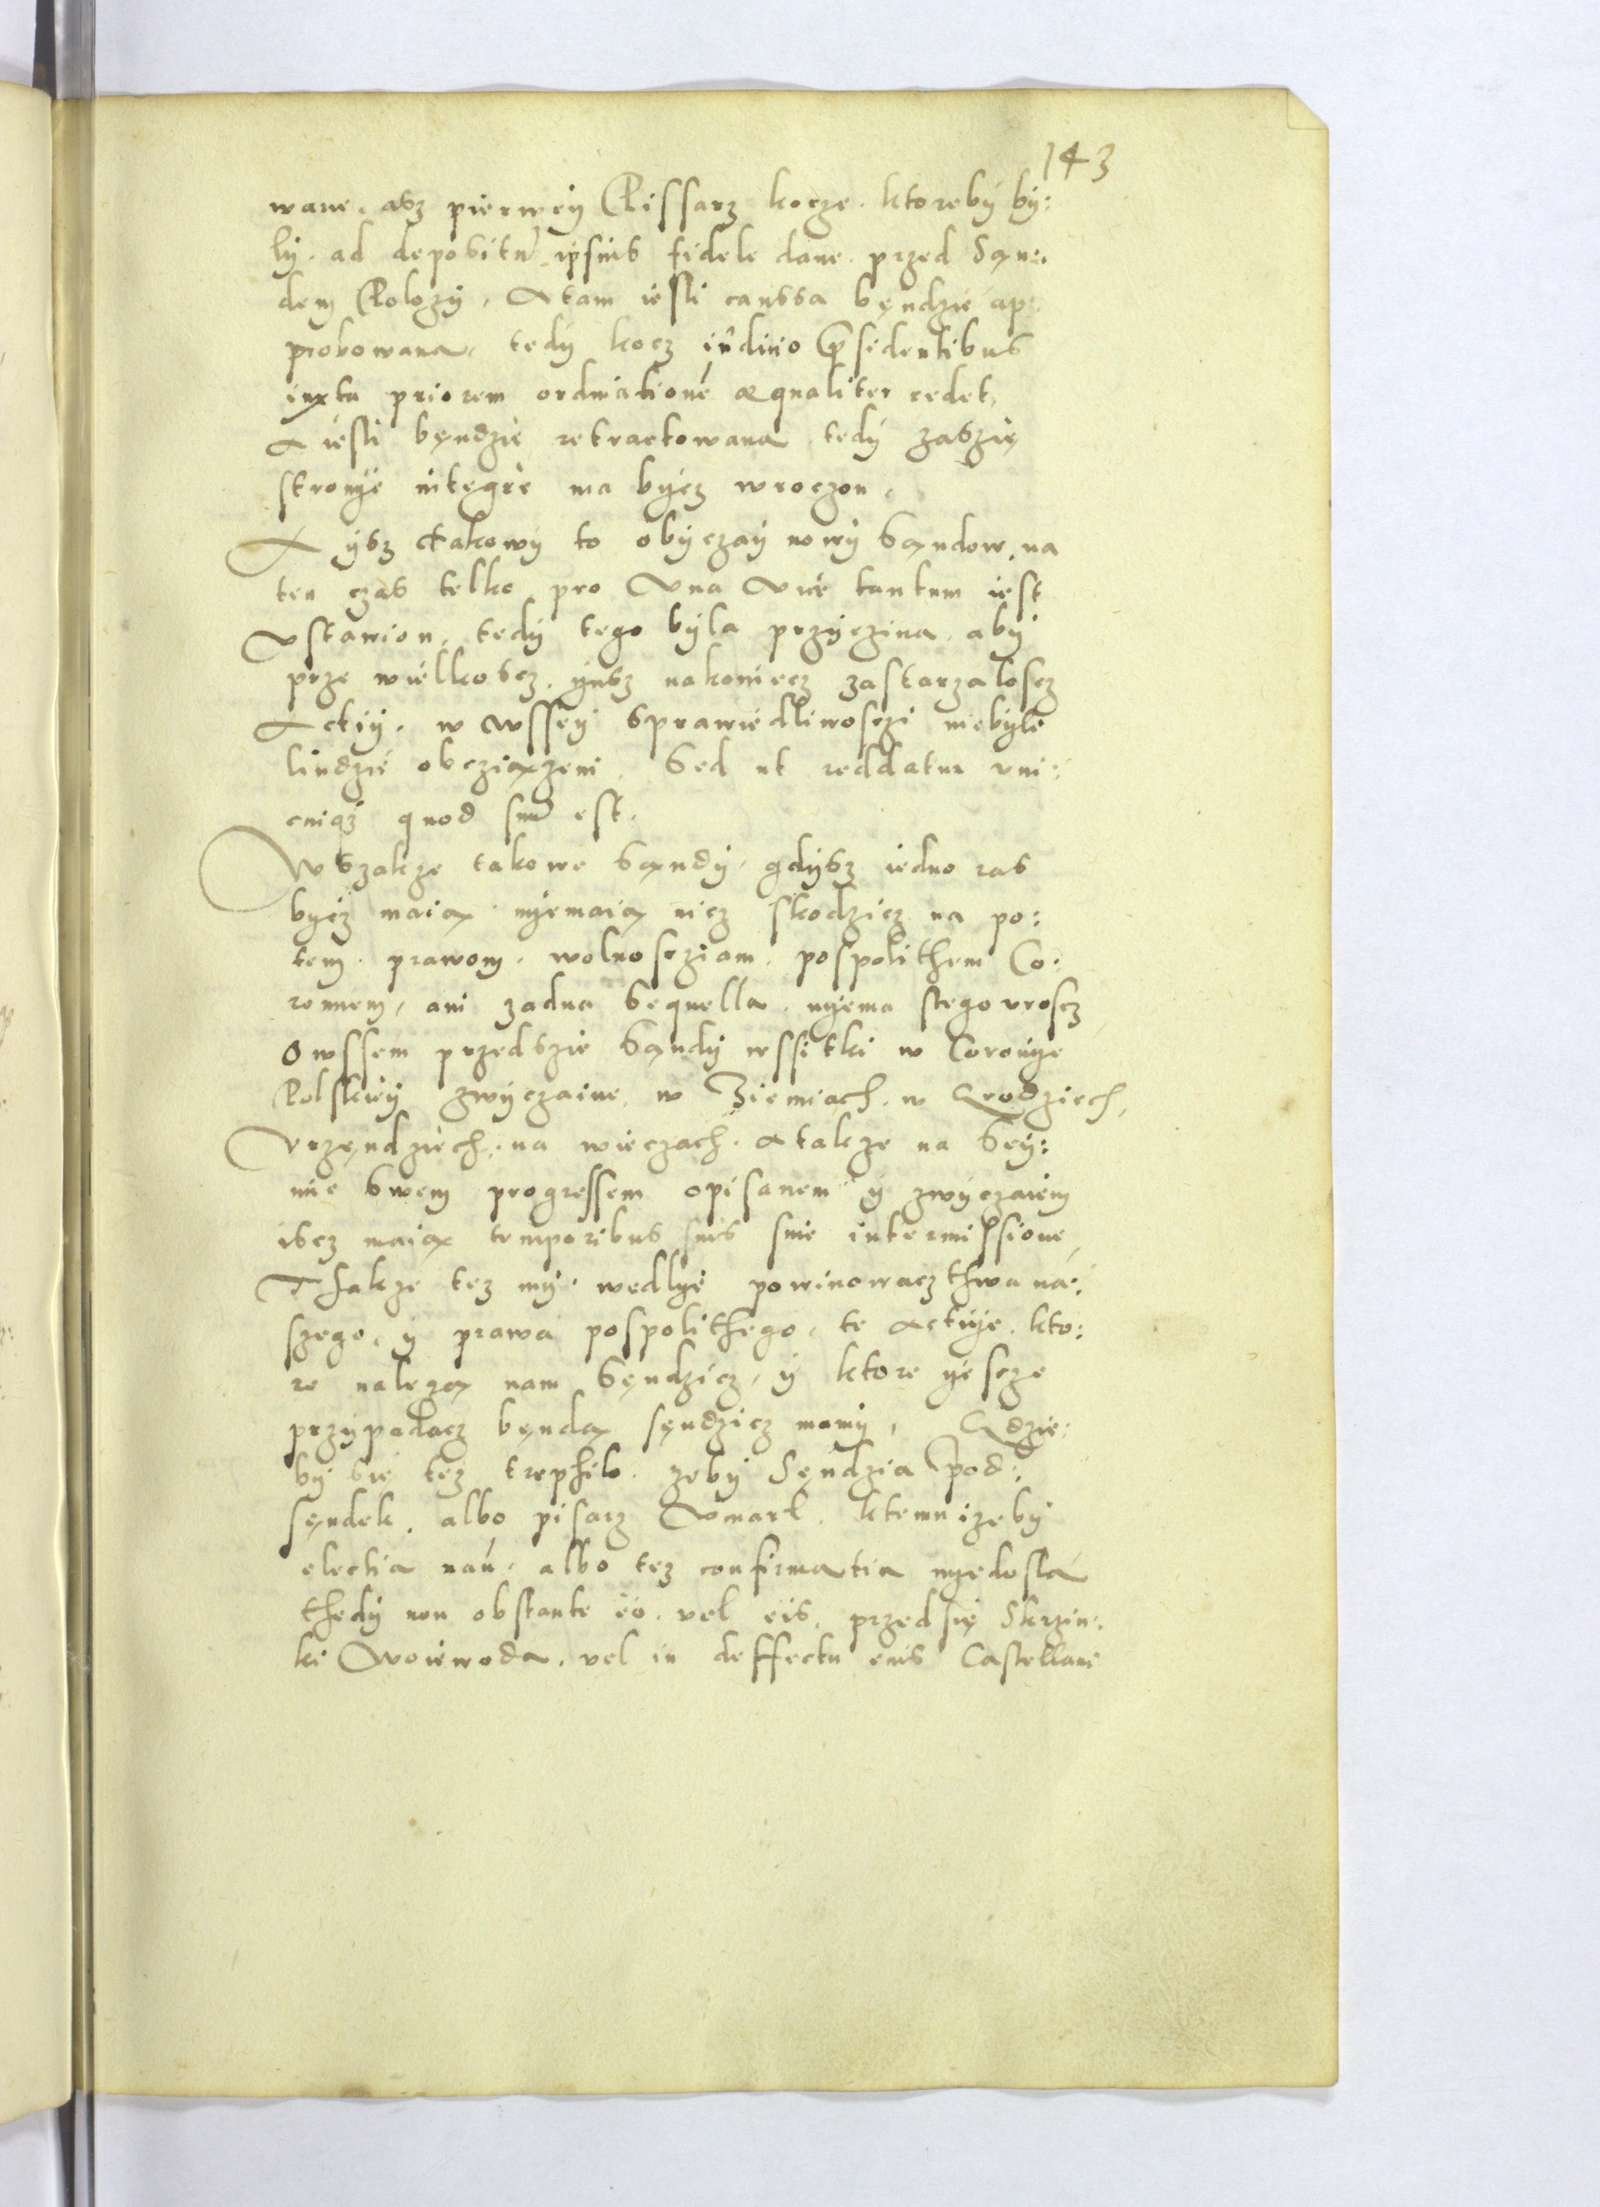 143
wane. asz pierwey Pissarz kocze. ktoreby by:
ly. ad depositū ipsius fidele dane. przed Sąn:
dem Polozy. A tam iesli caussa będzie ap:
probowana, tedy kocz iudicio Presidentibus
iuxta priorem ordinationē æqualiter cedet,
A iesli będzie retractowana tedy zaszię
stronye integre ma bycz wroczon.
A ysz takowy to obyczay nowy sąndow, na
ten czas telko pro Una Vice tantum iest
Ustawion, tedy tego byla przyczina. aby
prze wielkoscz. ynsz nakoniecz zastarzaloscz
Actiy. w wssey sprawiedliwosczi niebyle
liudzie obcziązeni. Sed ut reddatur uni:
cuiqz quod suū est.
Wszakze takowe sąndy, gdysz iedno ras
bycz maią. nyemaią nicz skodzicz na po:
tem. prawom. wolnoscziam. pospolithem Co:
ronnem, ani zadna sequella. nyema stego uroscz
Owssem przedszie sąndy wssitki w Coronye
Polskiey zwyczaine, w Ziemiach. w Grodziech,
Urzędziech. na wieczach. A takze na Sey:
mie swem progressem opisanem y zwyczaiem
iscz maią temporibus suis sine intermissione,
Thakze tez my. wedlye powinowacz thwa na:
szego. y prawa pospolithego, te actiye. kto:
re nalezą nam sęndzicz, y ktore yescze
przypadacz będą sęndzicz mamy, Gdzie:
by sie tez trephilo. zeby Sęndzia Pod:
sęndek. albo pisarz Umarl. ktemu izeby
electia nań. albo tez confirmatia nyedosla
thedy non obstante eo. vel eis. przedsię Skrzin:
ki Woiewoda. vel in deffectu eius Castellani